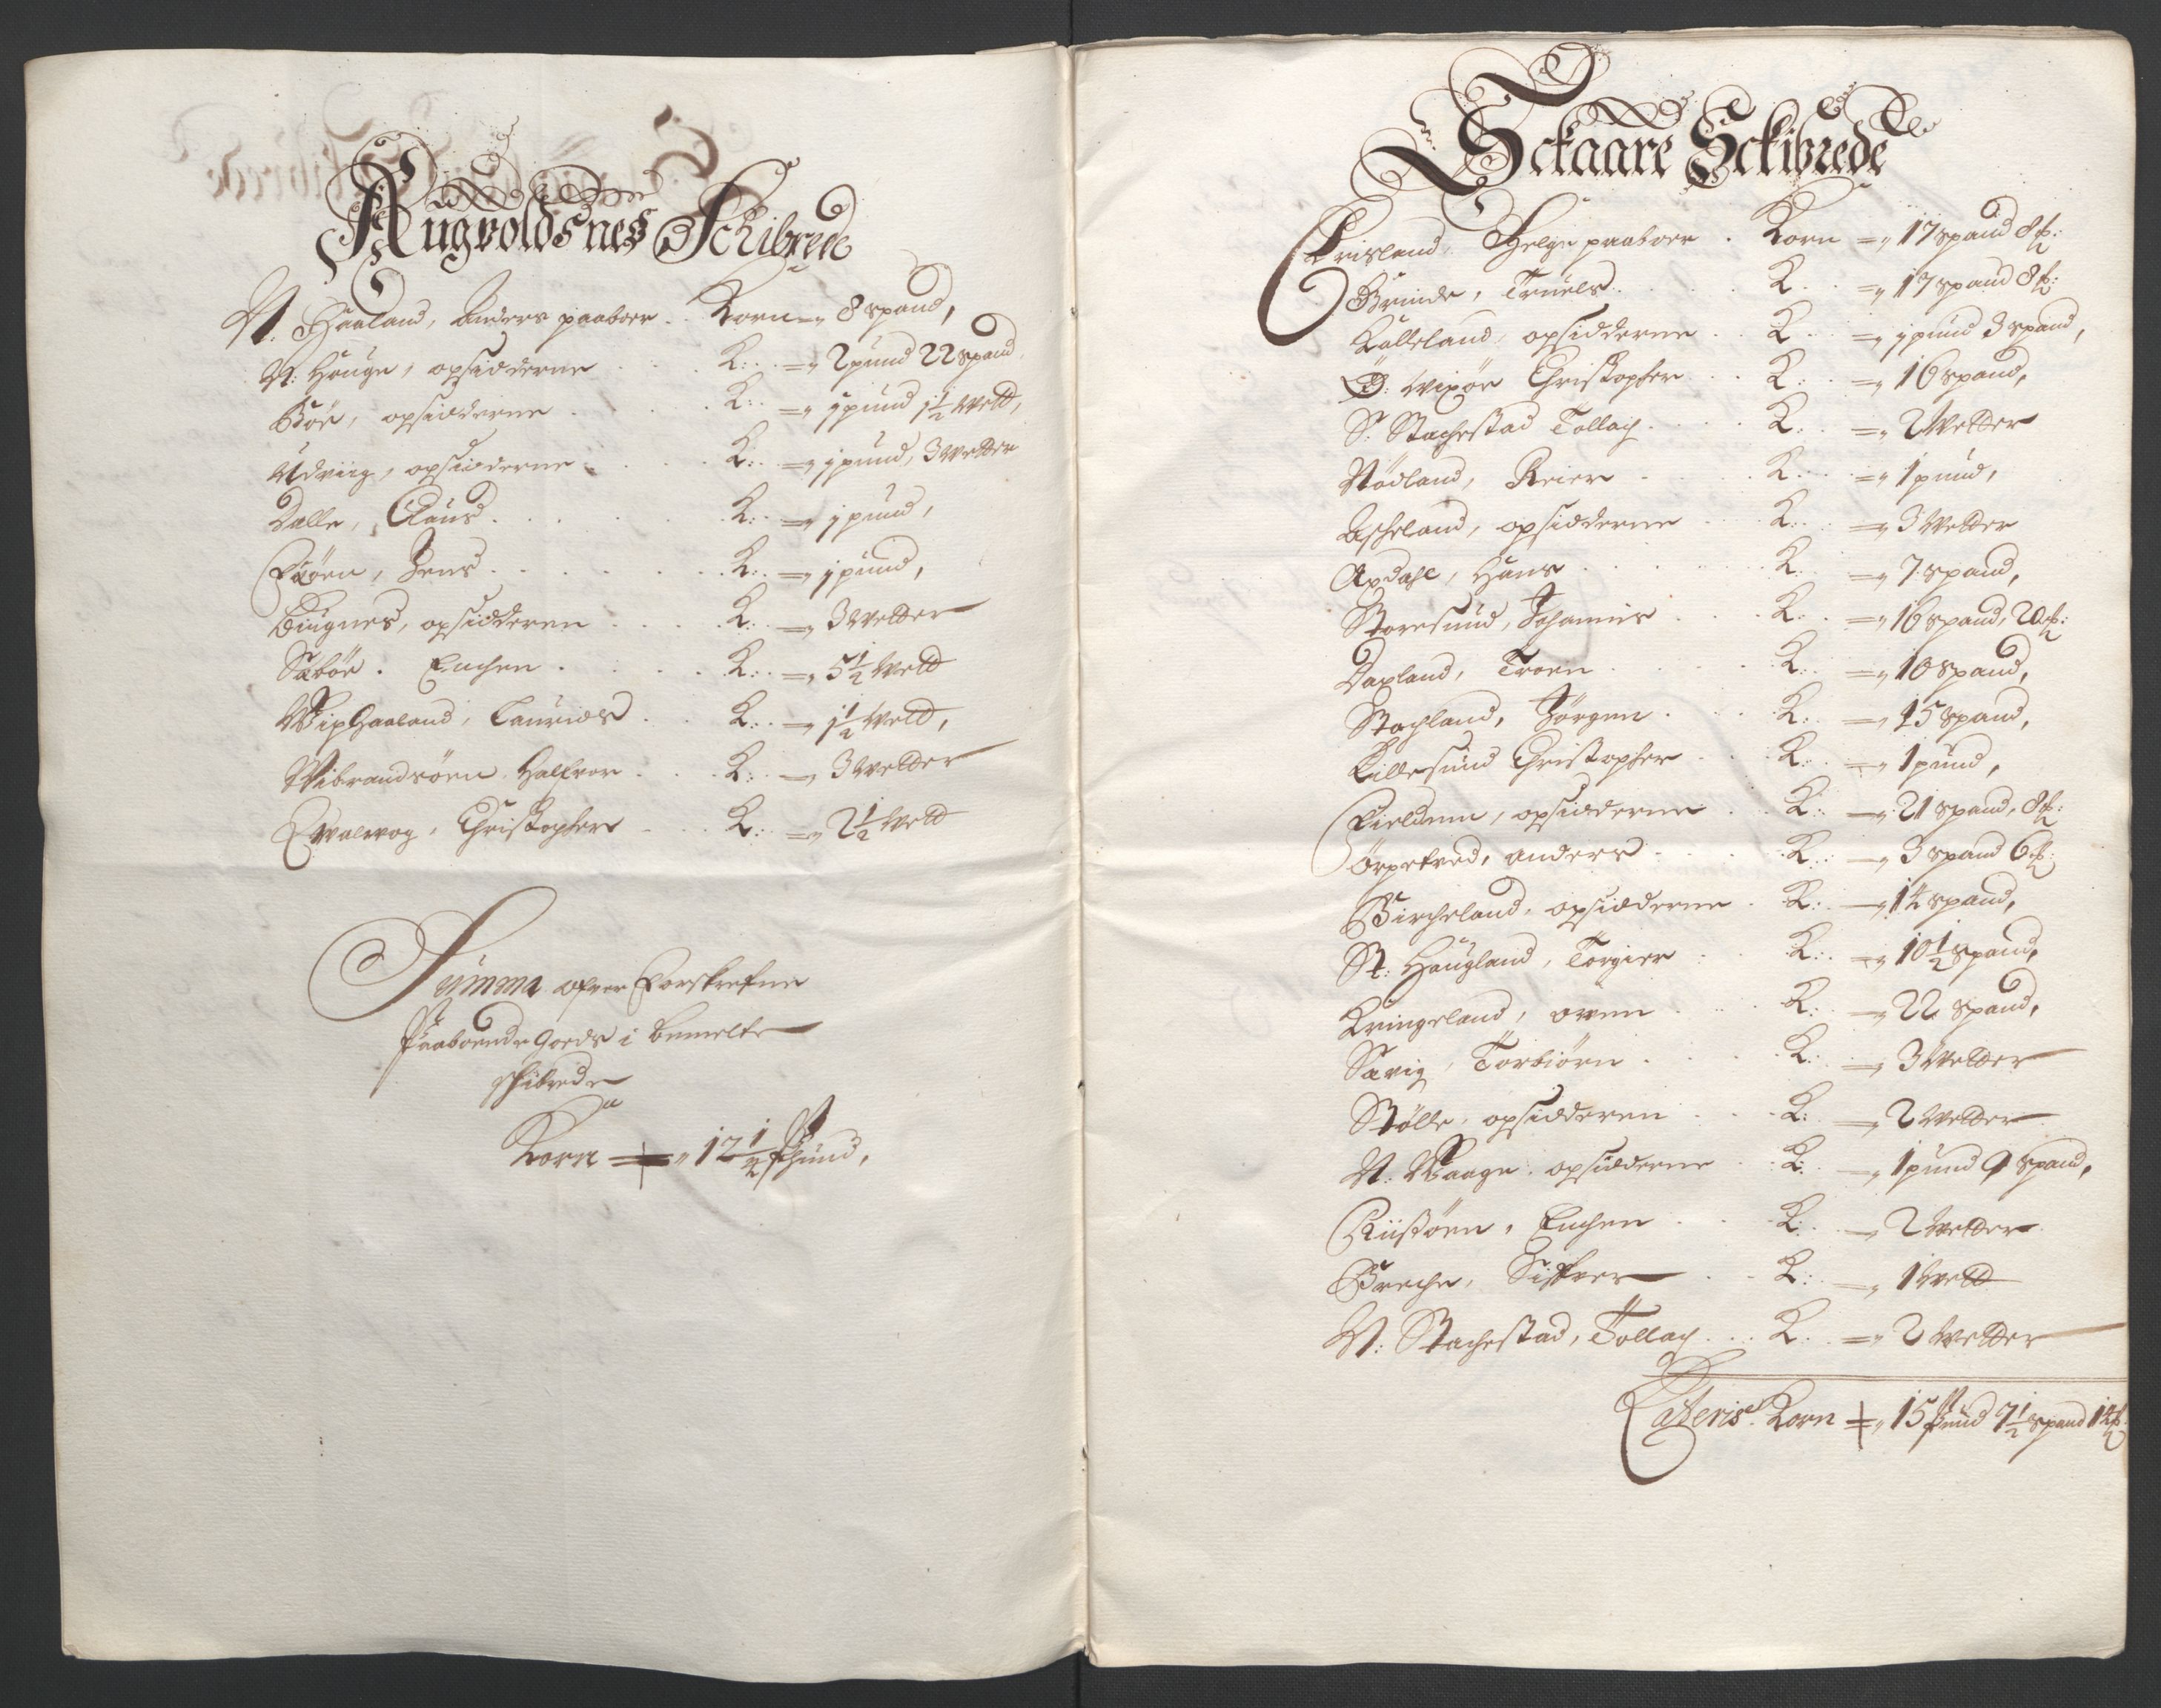 Augvoldsnes Schibrede
N. Haaland, Anders paaboer . Korn = 8 spand,
N: Hauge, opsidderne . K: = 2 pund 22 spand
Bøe, opsidderne . K: = 1 pund 1½ Wett,
Udviig, opsidderne . K: = 1 pund, 3 Wetter
Dalle, Claus . K: = 1 pund,
Fæøen, Jens . K: = 1 pund,
Biugnes, opsidderen . K: = 3 Wetter
Sæbøe . Enchen . K: = 5½ Wett
Wip Haaland, Laurids . K: = 1½ Wett,
Wibrandsøen Halfvor . K: = 3 Wetter
Qwalwog, Christopher . K: = 2½ Wett
Summa ofver Forskrefne
Paaboende Goeds i bemelte
schibrede
Korn = 12½ Pund,
Sckaare Sckibrede
Krisland, Helge paaboer . Korn = 17 spand 8 ℔:
Grinde, Truels . K. = 17 spand 8 ℔:
Kalleland, opsidderne . K. = 1 pund 3 spand,
Ø: Wixøe Christopher . K: = 16 spand,
S: Stachestad Tollach . K: = 2 Wetter
Nødland, Reier . K: = 1 pund,
Ascheland, opsidderne . K: = 3 Wetter
Axdahl, Hans . K: = 7 spand,
Storesund, Johannis . K: = 16 spand, 20 ℔:
Daxland, Troen . K: = 10 spand,
Stachland, Jørgen . K: = 15 spand,
Lillesund Christopher . K: = 1 pund,
Fieldem, opsidderne . K: = 21 spand, 8 ℔:
Ørpetved, anders . K: = 3 spand 6 ℔:
Bircheland, opsidderne . K: = 14 spand,
St: Haugland, Torgier . K: = 10½ spand,
Kringeland, oven . K: = 22 spand,
Sævig, Torbiørn . K: = 3 Wetter
Stølle, opsidderen . K: = 2 Wetter
N. Waage, opsidderne . K: = 1 pund 9 spand,
Riisøen, Enchen . K: = 2 Wetter
Breche, Siffver . K: = 1 Wett
N: Stachestad, Tollach . K. = 2 Wetter
Lateris Korn = 15 pund 7½ spand 14 ℔